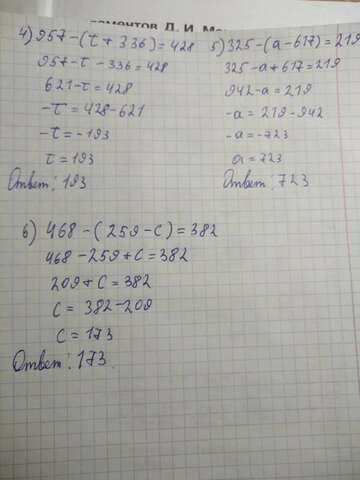 ементов Д. И. Ме
4) 957-(t+336)=428
957-t-336=428
621-t=428
-t=428-621
-t=-193
t=193
Ответ: 193
5) 325-(a-617)=219
325-a+617=219
942-a=219
-a=219-942
-a=-723
a=723
Ответ: 723
6) 468-(259-c)=382
468-259+c=382
209+c=382
c=382-209
c=173
Ответ: 173.